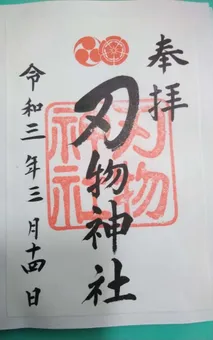 奉拝
刃物神社
刃物神社
令和三年三月十四日